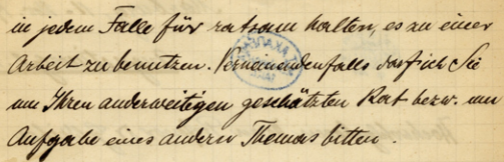 in jedem Falle für ratsam halten, es zu einer
Arbeit zu benutzen. Verneinendenfalls darf ich Sie
um Ihren anderweitigen geschätzten Rat bezw. um
Aufgabe eines andern Themas bitten.